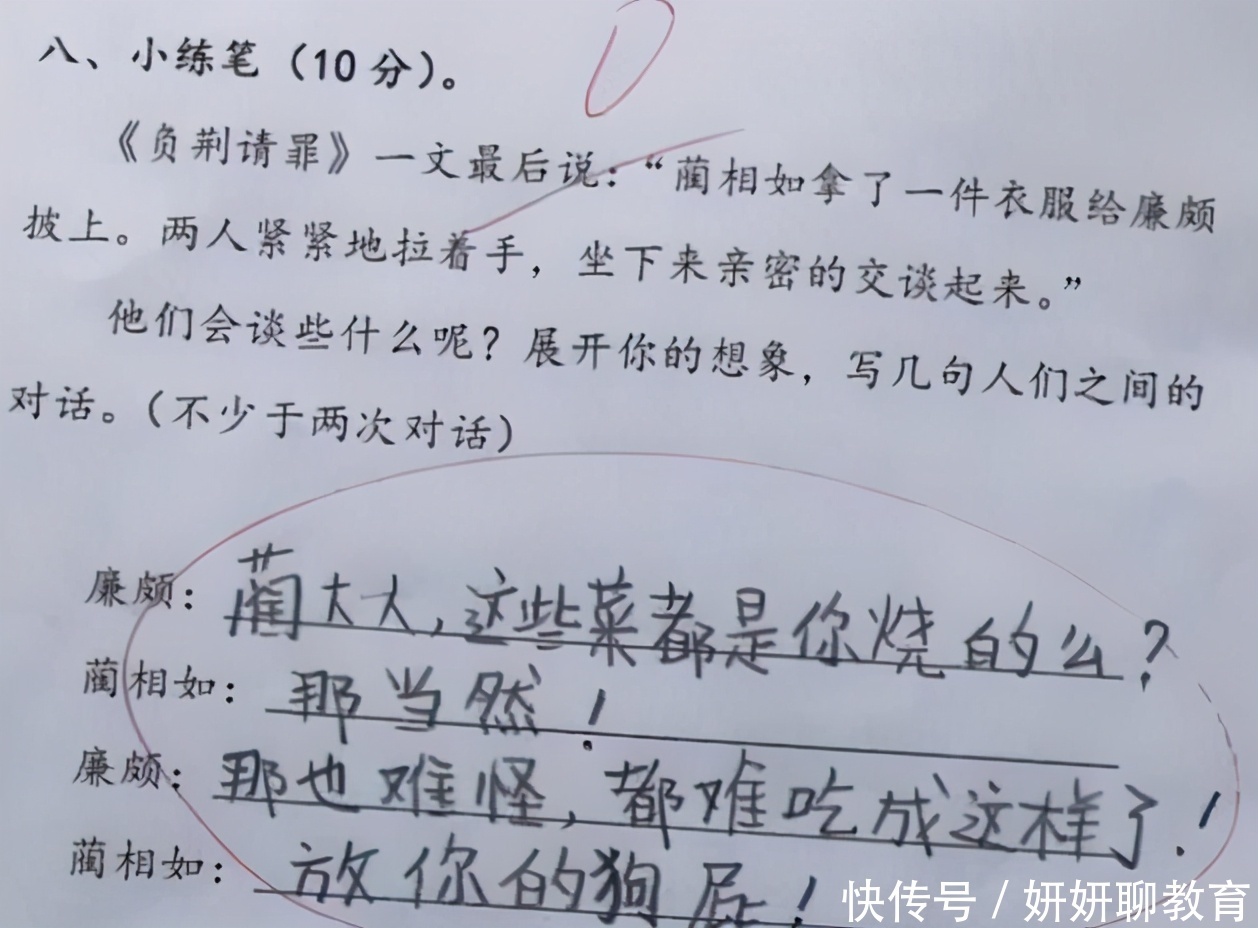 八、小练笔（10分）。
《负荆请罪》一文最后说：“蔺相如拿了一件衣服给廉颇
披上。两人紧紧地拉着手，坐下来亲密的交谈起来。”
他们会谈些什么呢？展开你的想象，写几句人们之间的
对话。（不少于两次对话）
廉颇：蔺大人，这些菜都是你烧的么？
蔺相如：那当然！
廉颇：那也难怪，都难吃成这样了！
蔺相如：放你的狗屁！
快传号 / 妍妍聊教育